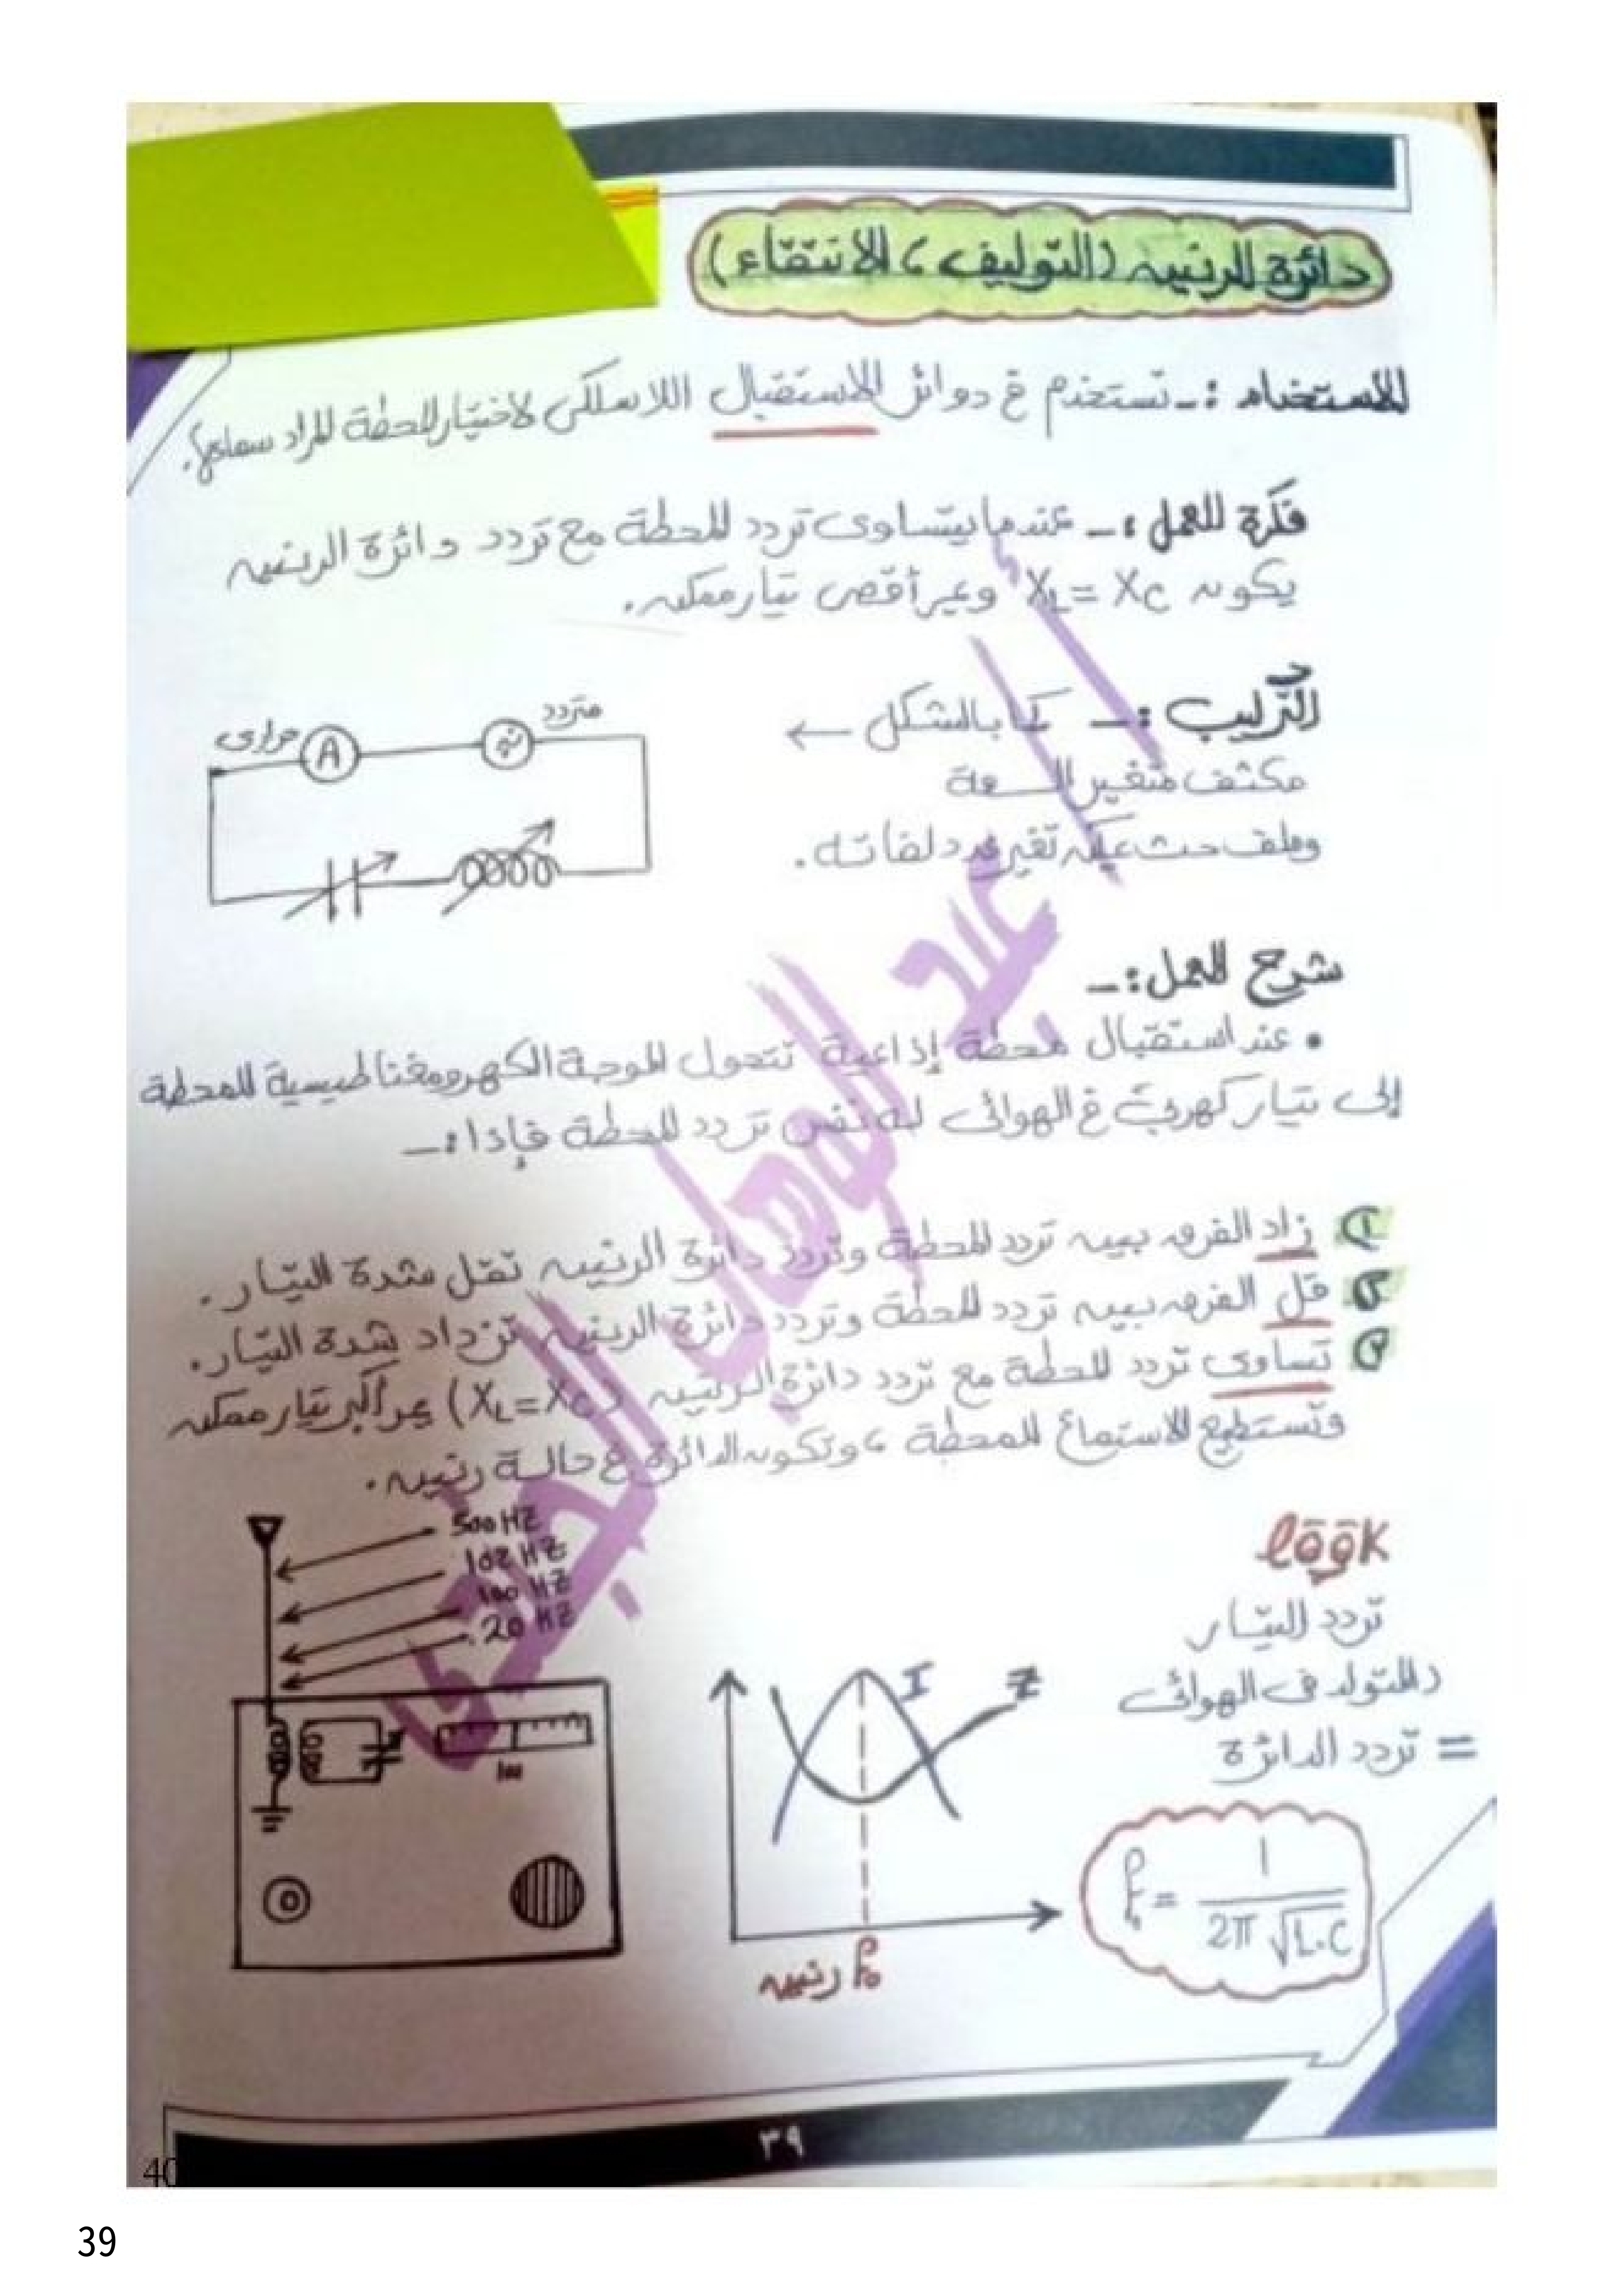 دائرة الرنين (التوليف ، الانتقاء)
الاستخدام :- تستخدم في دوائر الاستقبال اللاسلكى لاختيار المحطة المراد سماعها.
فكرة العمل :- عندما يتساوى تردد المحطة مع تردد دائرة الرنين
يكون XL = XC ويمر أقصى تيار ممكن.
التركيب :- كما بالشكل ←
مكثف متغير السعة
وملف حث يمكن تغير عدد لفاته.
حرارى
A
متردد
شرح العمل :-
• عند استقبال محطة إذاعية تتحول الموجة الكهرومغناطيسية للمحطة
إلى تيار كهربى في الهوائى له نفس تردد المحطة فإذا :-
١ زاد الفرق بين تردد المحطة وتردد دائرة الرنين تقل شدة التيار.
٢ قل الفرق بين تردد المحطة وتردد دائرة الرنين تزداد شدة التيار.
٣ تساوى تردد المحطة مع تردد دائرة الرنين (XL=XC) يمر أكبر تيار ممكن
وتستطيع الاستماع للمحطة ، وتكون الدائرة في حالة رنين.
أ/عبد الوهاب الجندى
500 HZ
102 HZ
100 HZ
20 HZ
100
I
Z
f₀ رنين
look
تردد التيار
المتولد في الهوائى
= تردد الدائرة
f₀ = 1 / 2π √L.C
٣٩
40
39